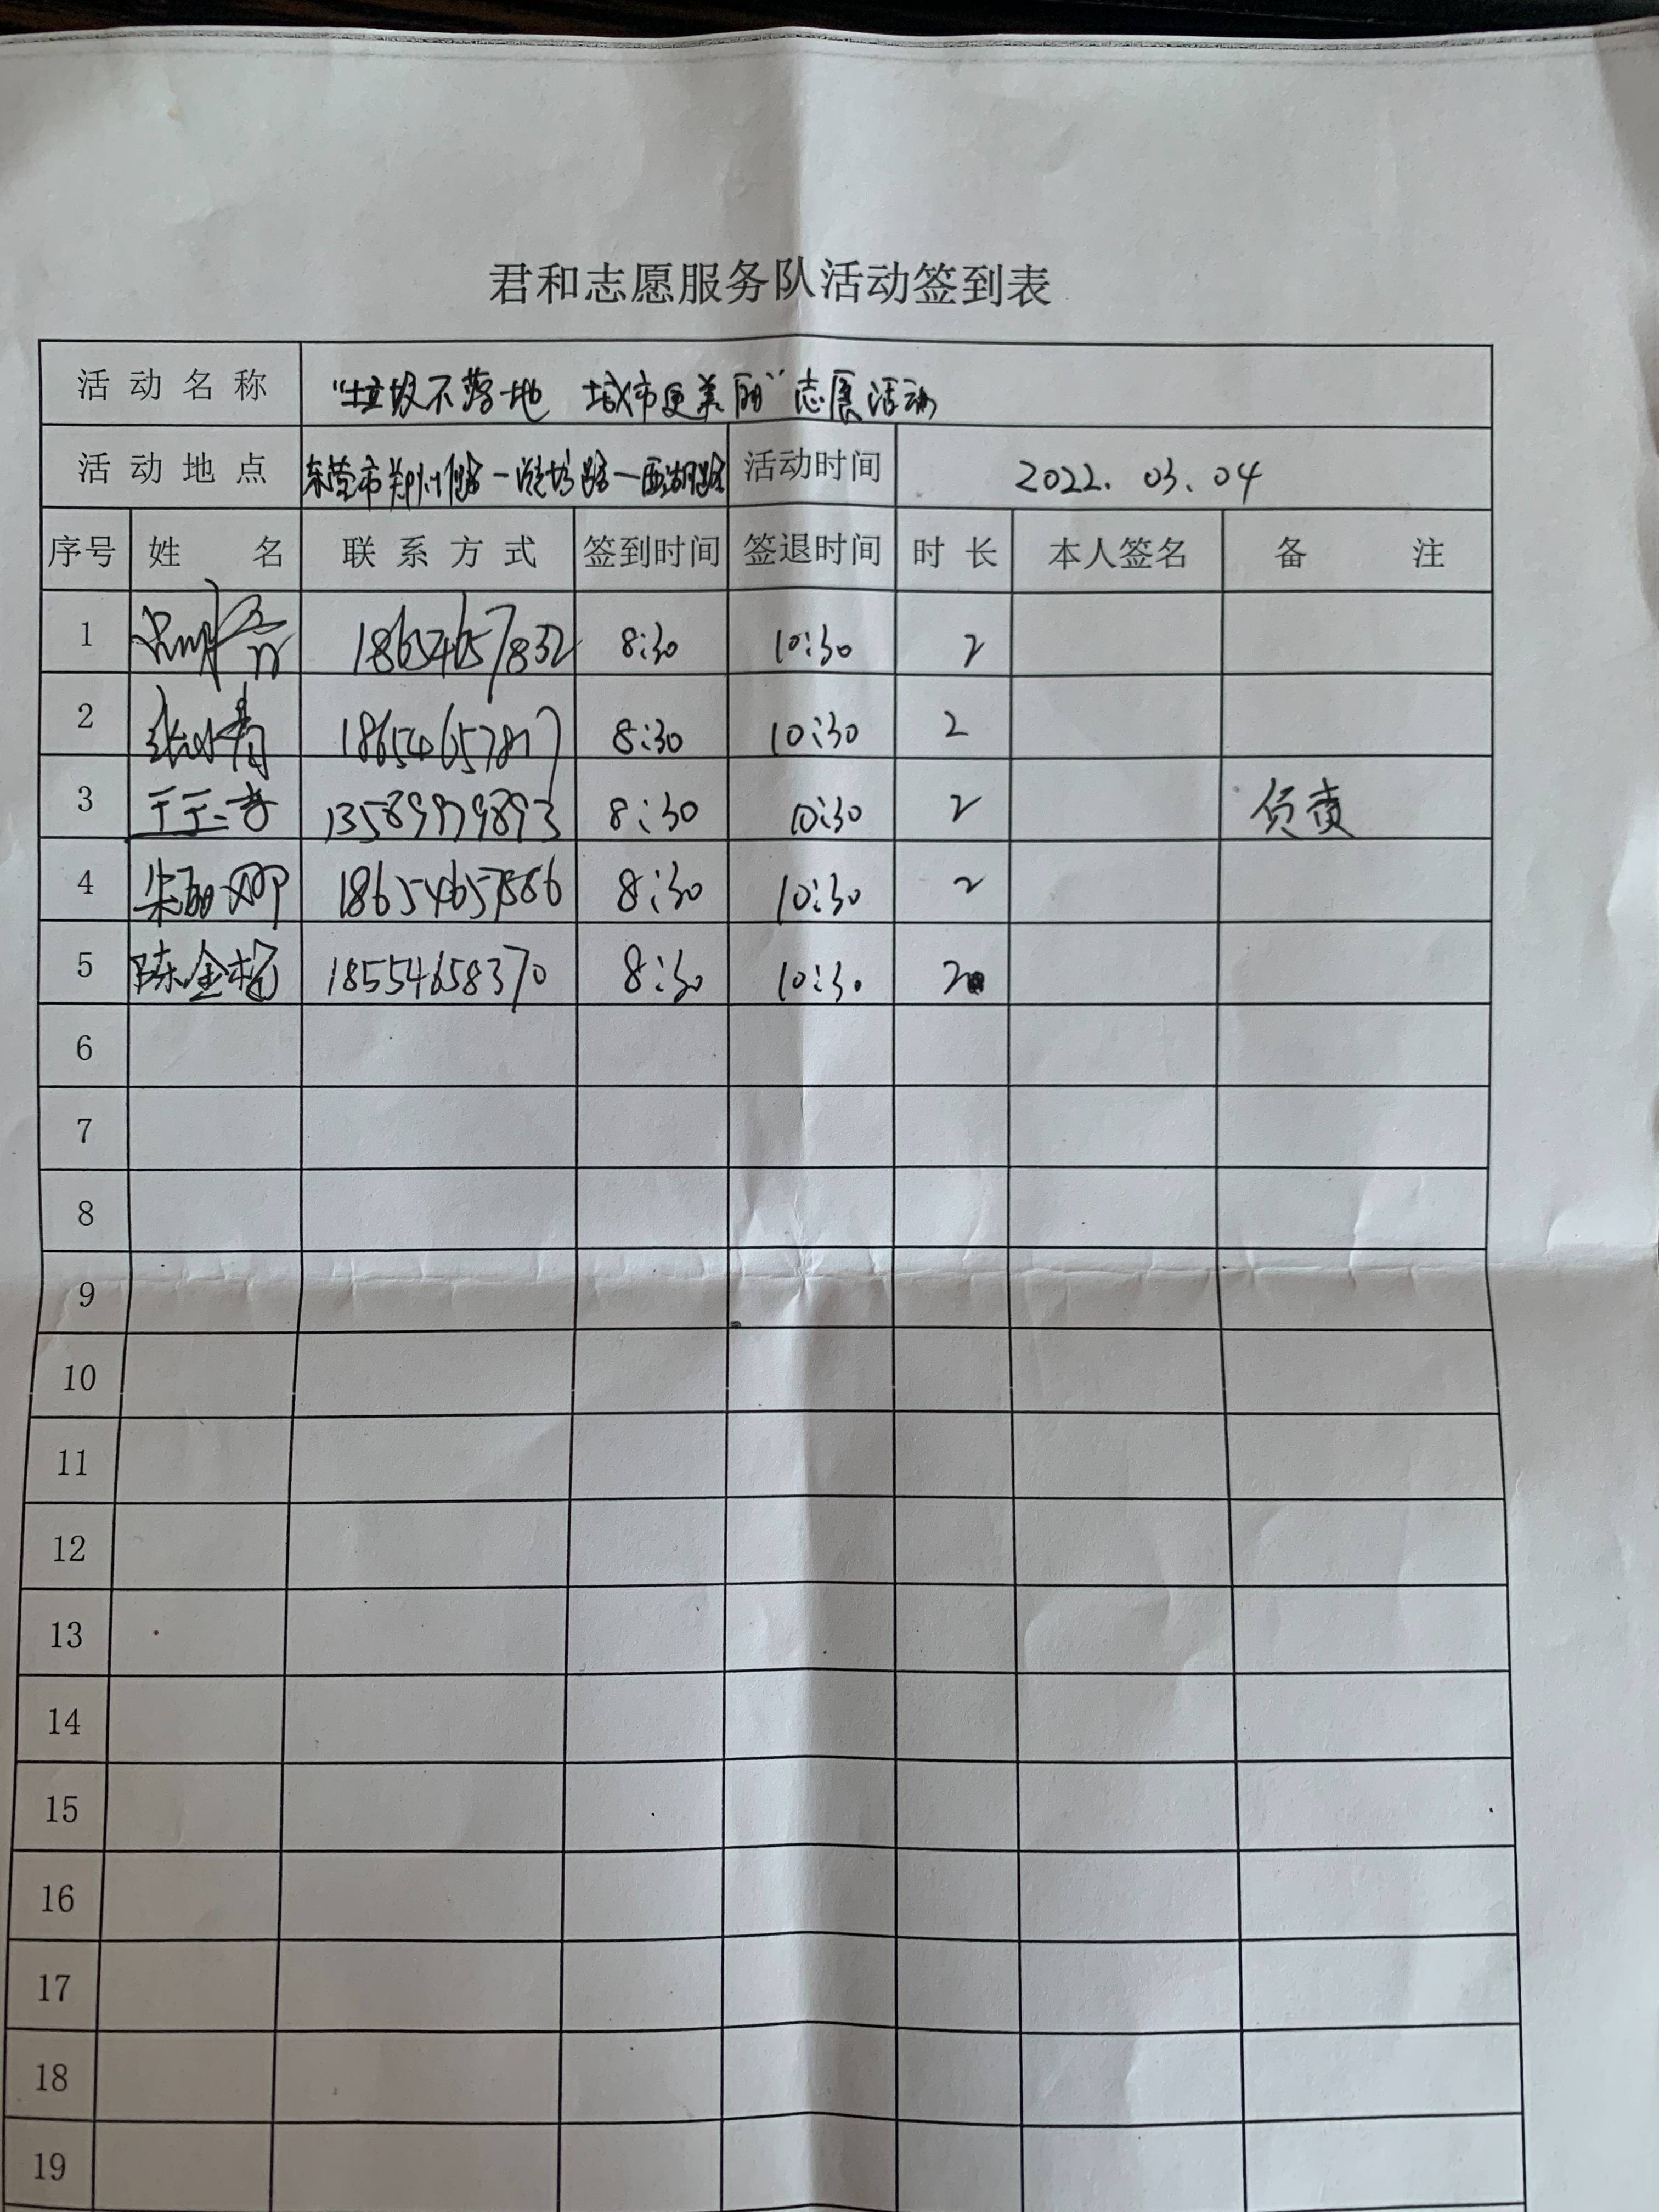 君和志愿服务队活动签到表
活动名称 “垃圾不落地 城市更美丽”志愿活动
活动地点 东营市郑州路—潍坊路—西湖路 活动时间 2022.03.04
序号 姓名 联系方式 签到时间 签退时间 时长 本人签名 备注
1 8:30 10:30 2
2 8:30 10:30 2
3 13589979893 8:30 10:30 2 负责
4 8:30 10:30 2
5 陈金 18554658370 8:30 10:30 2
6
7
8
9
10
11
12
13
14
15
16
17
18
19